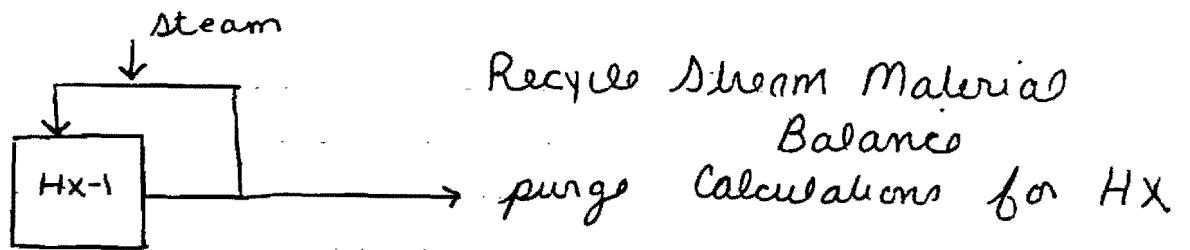 steam
Recycle Stream Material
Balance
HX-1
purge Calculations for HX